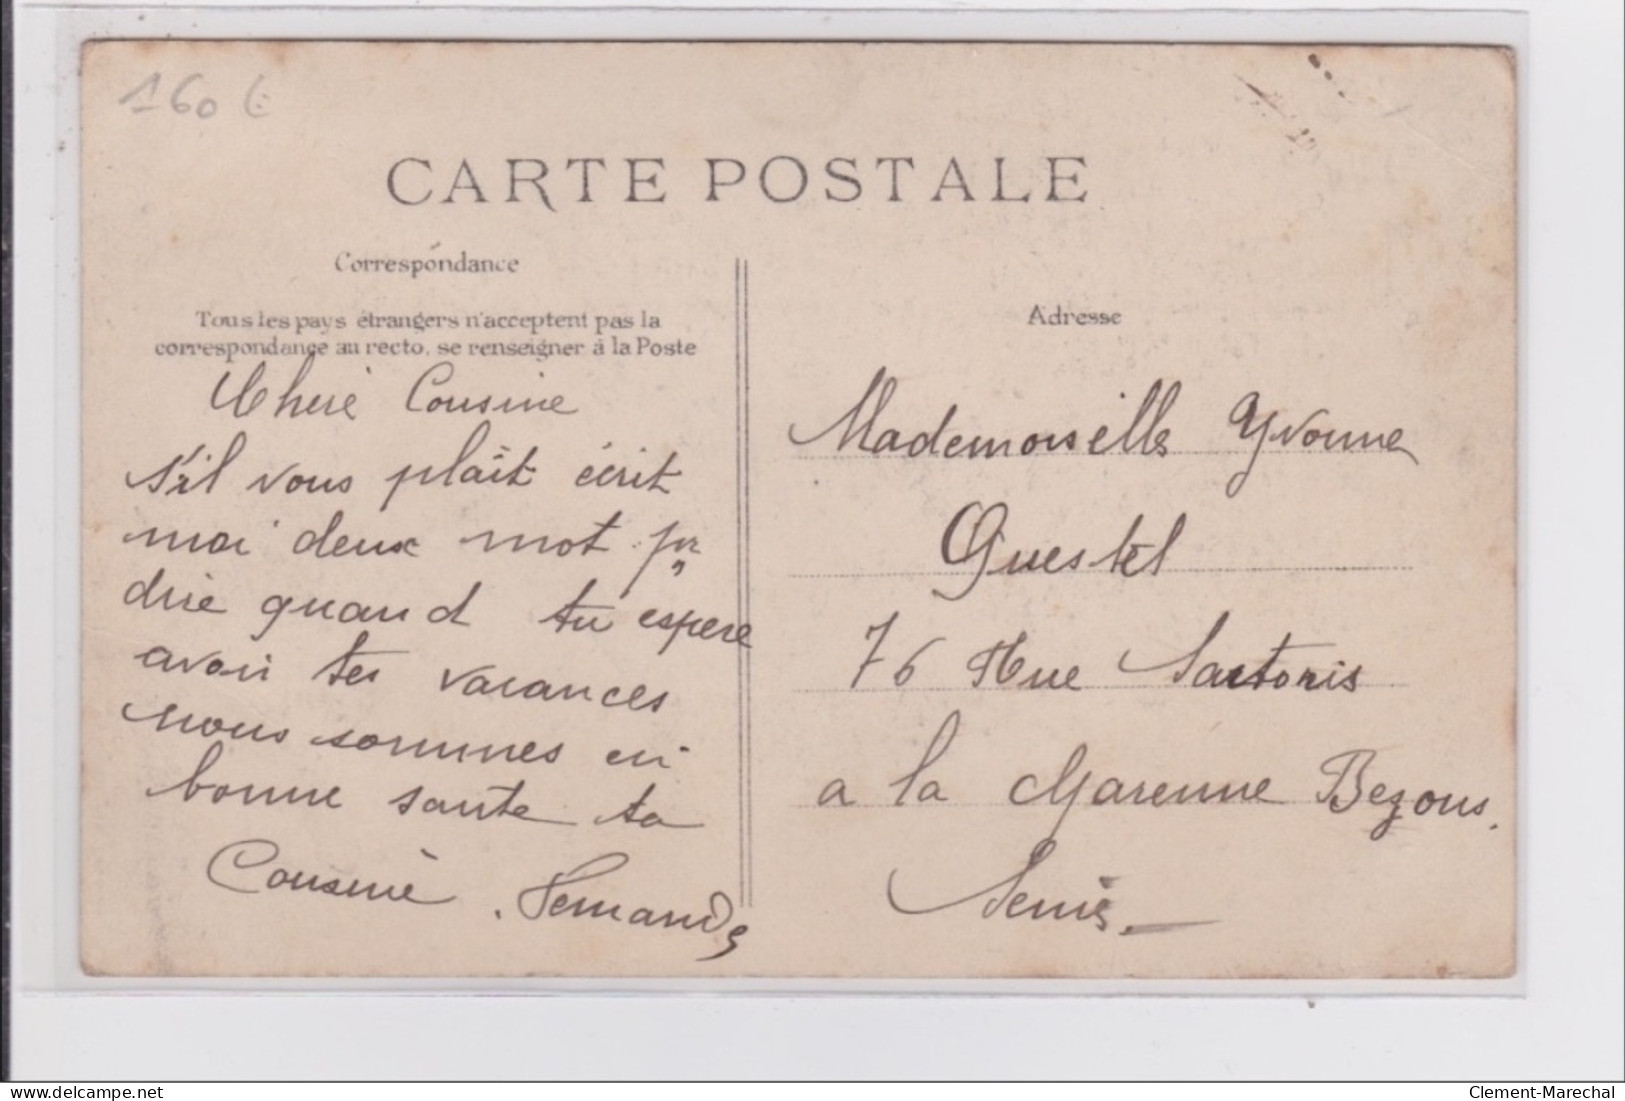 160 €
CARTE POSTALE
Correspondance
Tous les pays étrangers n'acceptent pas la
correspondance au recto, se renseigner à la Poste
Cheré Cousine
s'il vous plaît écrit
moi deux mot pr
dire quand tu espere
avoir tes vacances
nous sommes en
bonne sante ta
Cousine. Fernande
Adresse
Mademoiselle Yvonne
Questel
76 Rue Sartoris
a la Garenne Bezons.
Seine
delcampe.net
Clement-Marechal